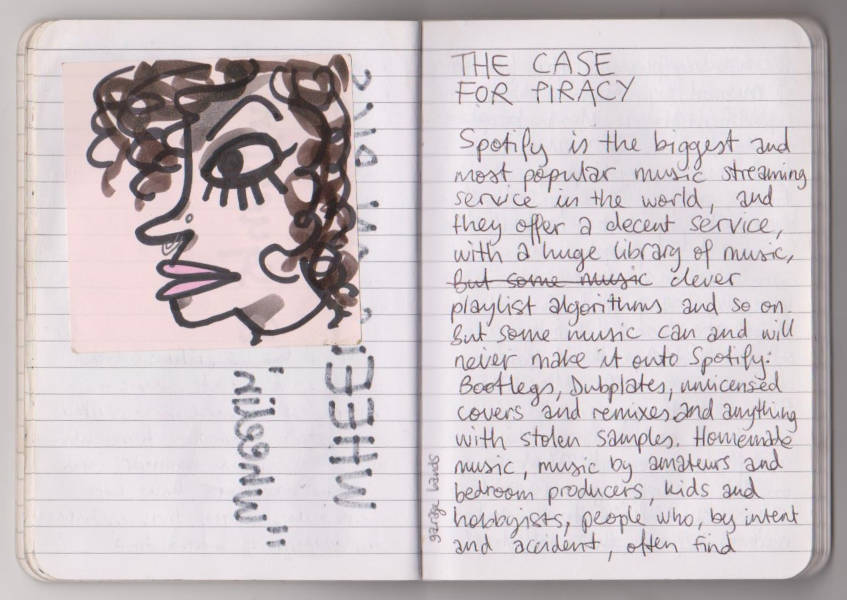 "wheelin'
THE CASE
FOR PIRACY
Spotify is the biggest and
most popular music streaming
service in the world, and
they offer a decent service,
with a huge library of music,
but some music clever
playlist algorithms and so on.
But some music can and will
never make it onto Spotify:
Bootlegs, Dubplates, unlicensed
covers and remixes, and anything
with stolen samples. Homemade
music, music by amateurs and
bedroom producers, kids and
hobbyists, people who, by intent
and accident, often find
garage bands